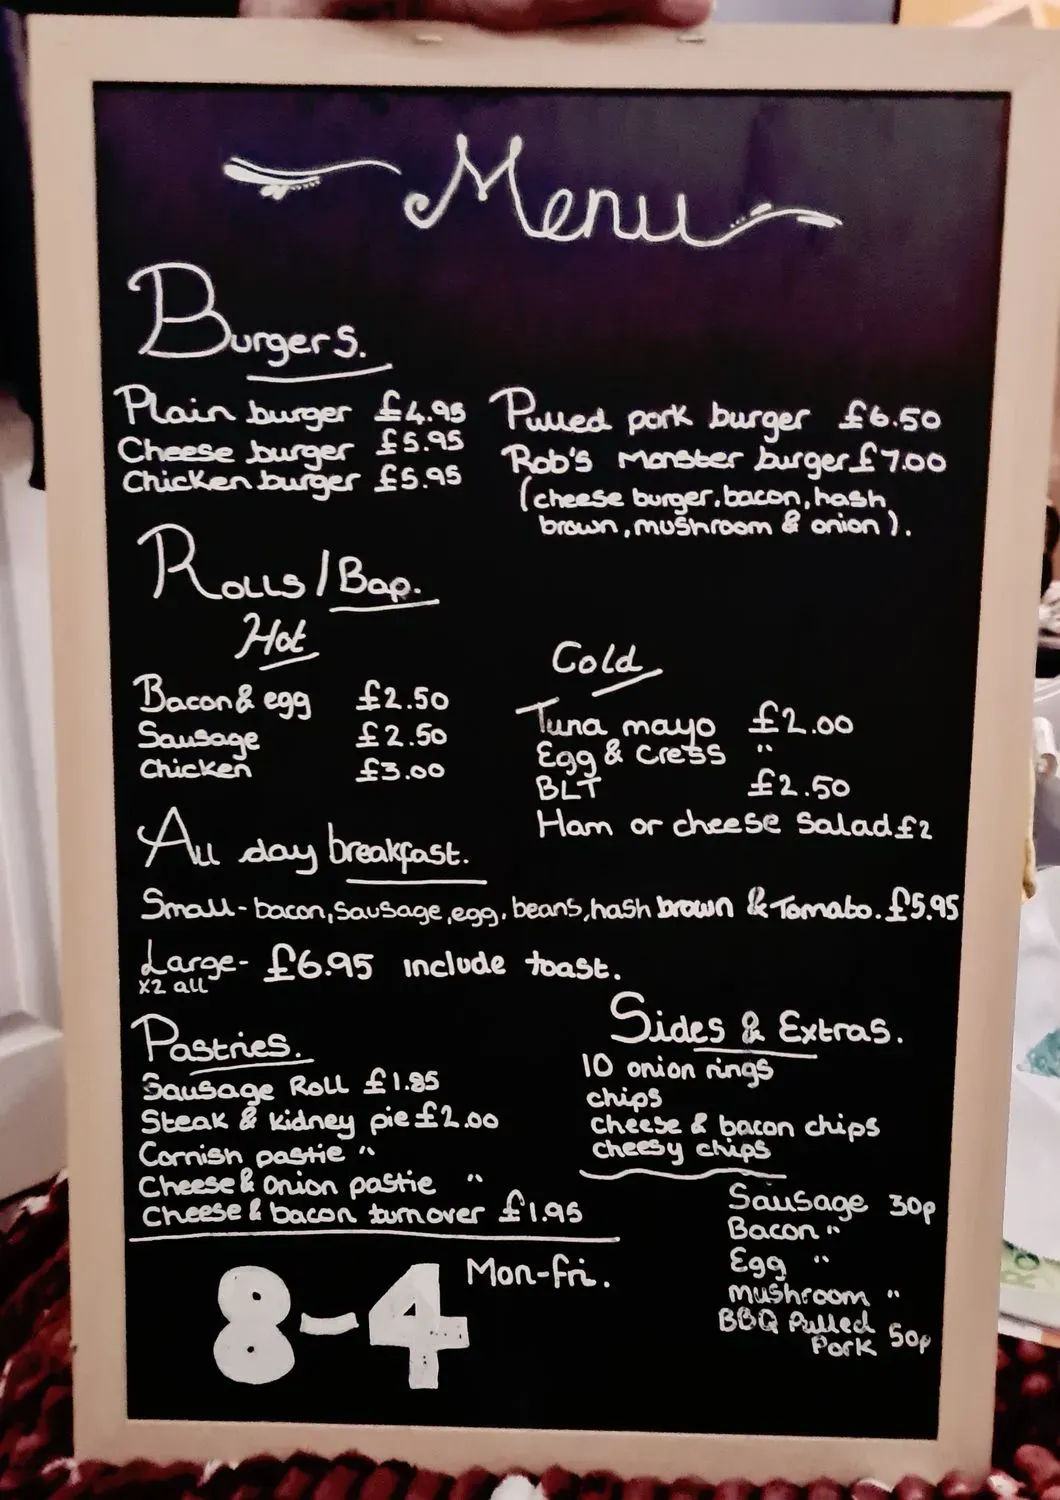 Menu
Burgers.
Plain burger £4.95
Cheese burger £5.95
Chicken burger £5.95
Pulled pork burger £6.50
Rob's Monster burger £7.00
(cheese burger, bacon, hash
brown, mushroom & onion).
Rolls/Bap.
Hot
Bacon & egg £2.50
Sausage £2.50
Chicken £3.00
Cold
Tuna mayo £2.00
Egg & Cress "
BLT £2.50
Ham or cheese Salad £2
All day breakfast.
Small - bacon, sausage, egg, beans, hash brown & Tomato. £5.95
Large - £6.95 include toast.
x2 all
Pastries.
Sausage Roll £1.85
Steak & kidney pie £2.00
Cornish pastie "
Cheese & Onion pastie "
Cheese & bacon turnover £1.95
Sides & Extras.
10 onion rings
chips
cheese & bacon chips
cheesy chips
Sausage 30p
Bacon "
Egg "
mushroom "
BBQ Pulled
Pork 50p
8-4 Mon-fri.